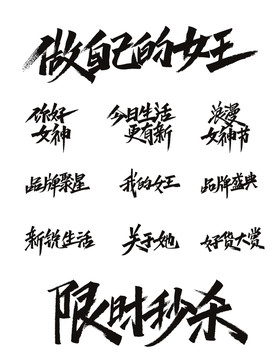 做自己的女王
你好
女神
今日生活
更有新
浪漫
女神节
品牌聚星
我的女王
品牌盛典
新锐生活
关于她
好货大赏
限时秒杀